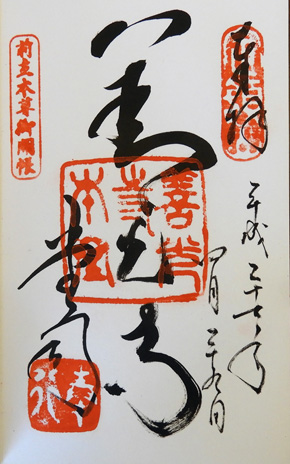 奉拝
平成二十七年
四月二十九日
善光寺
堂司
前立本尊御開帳